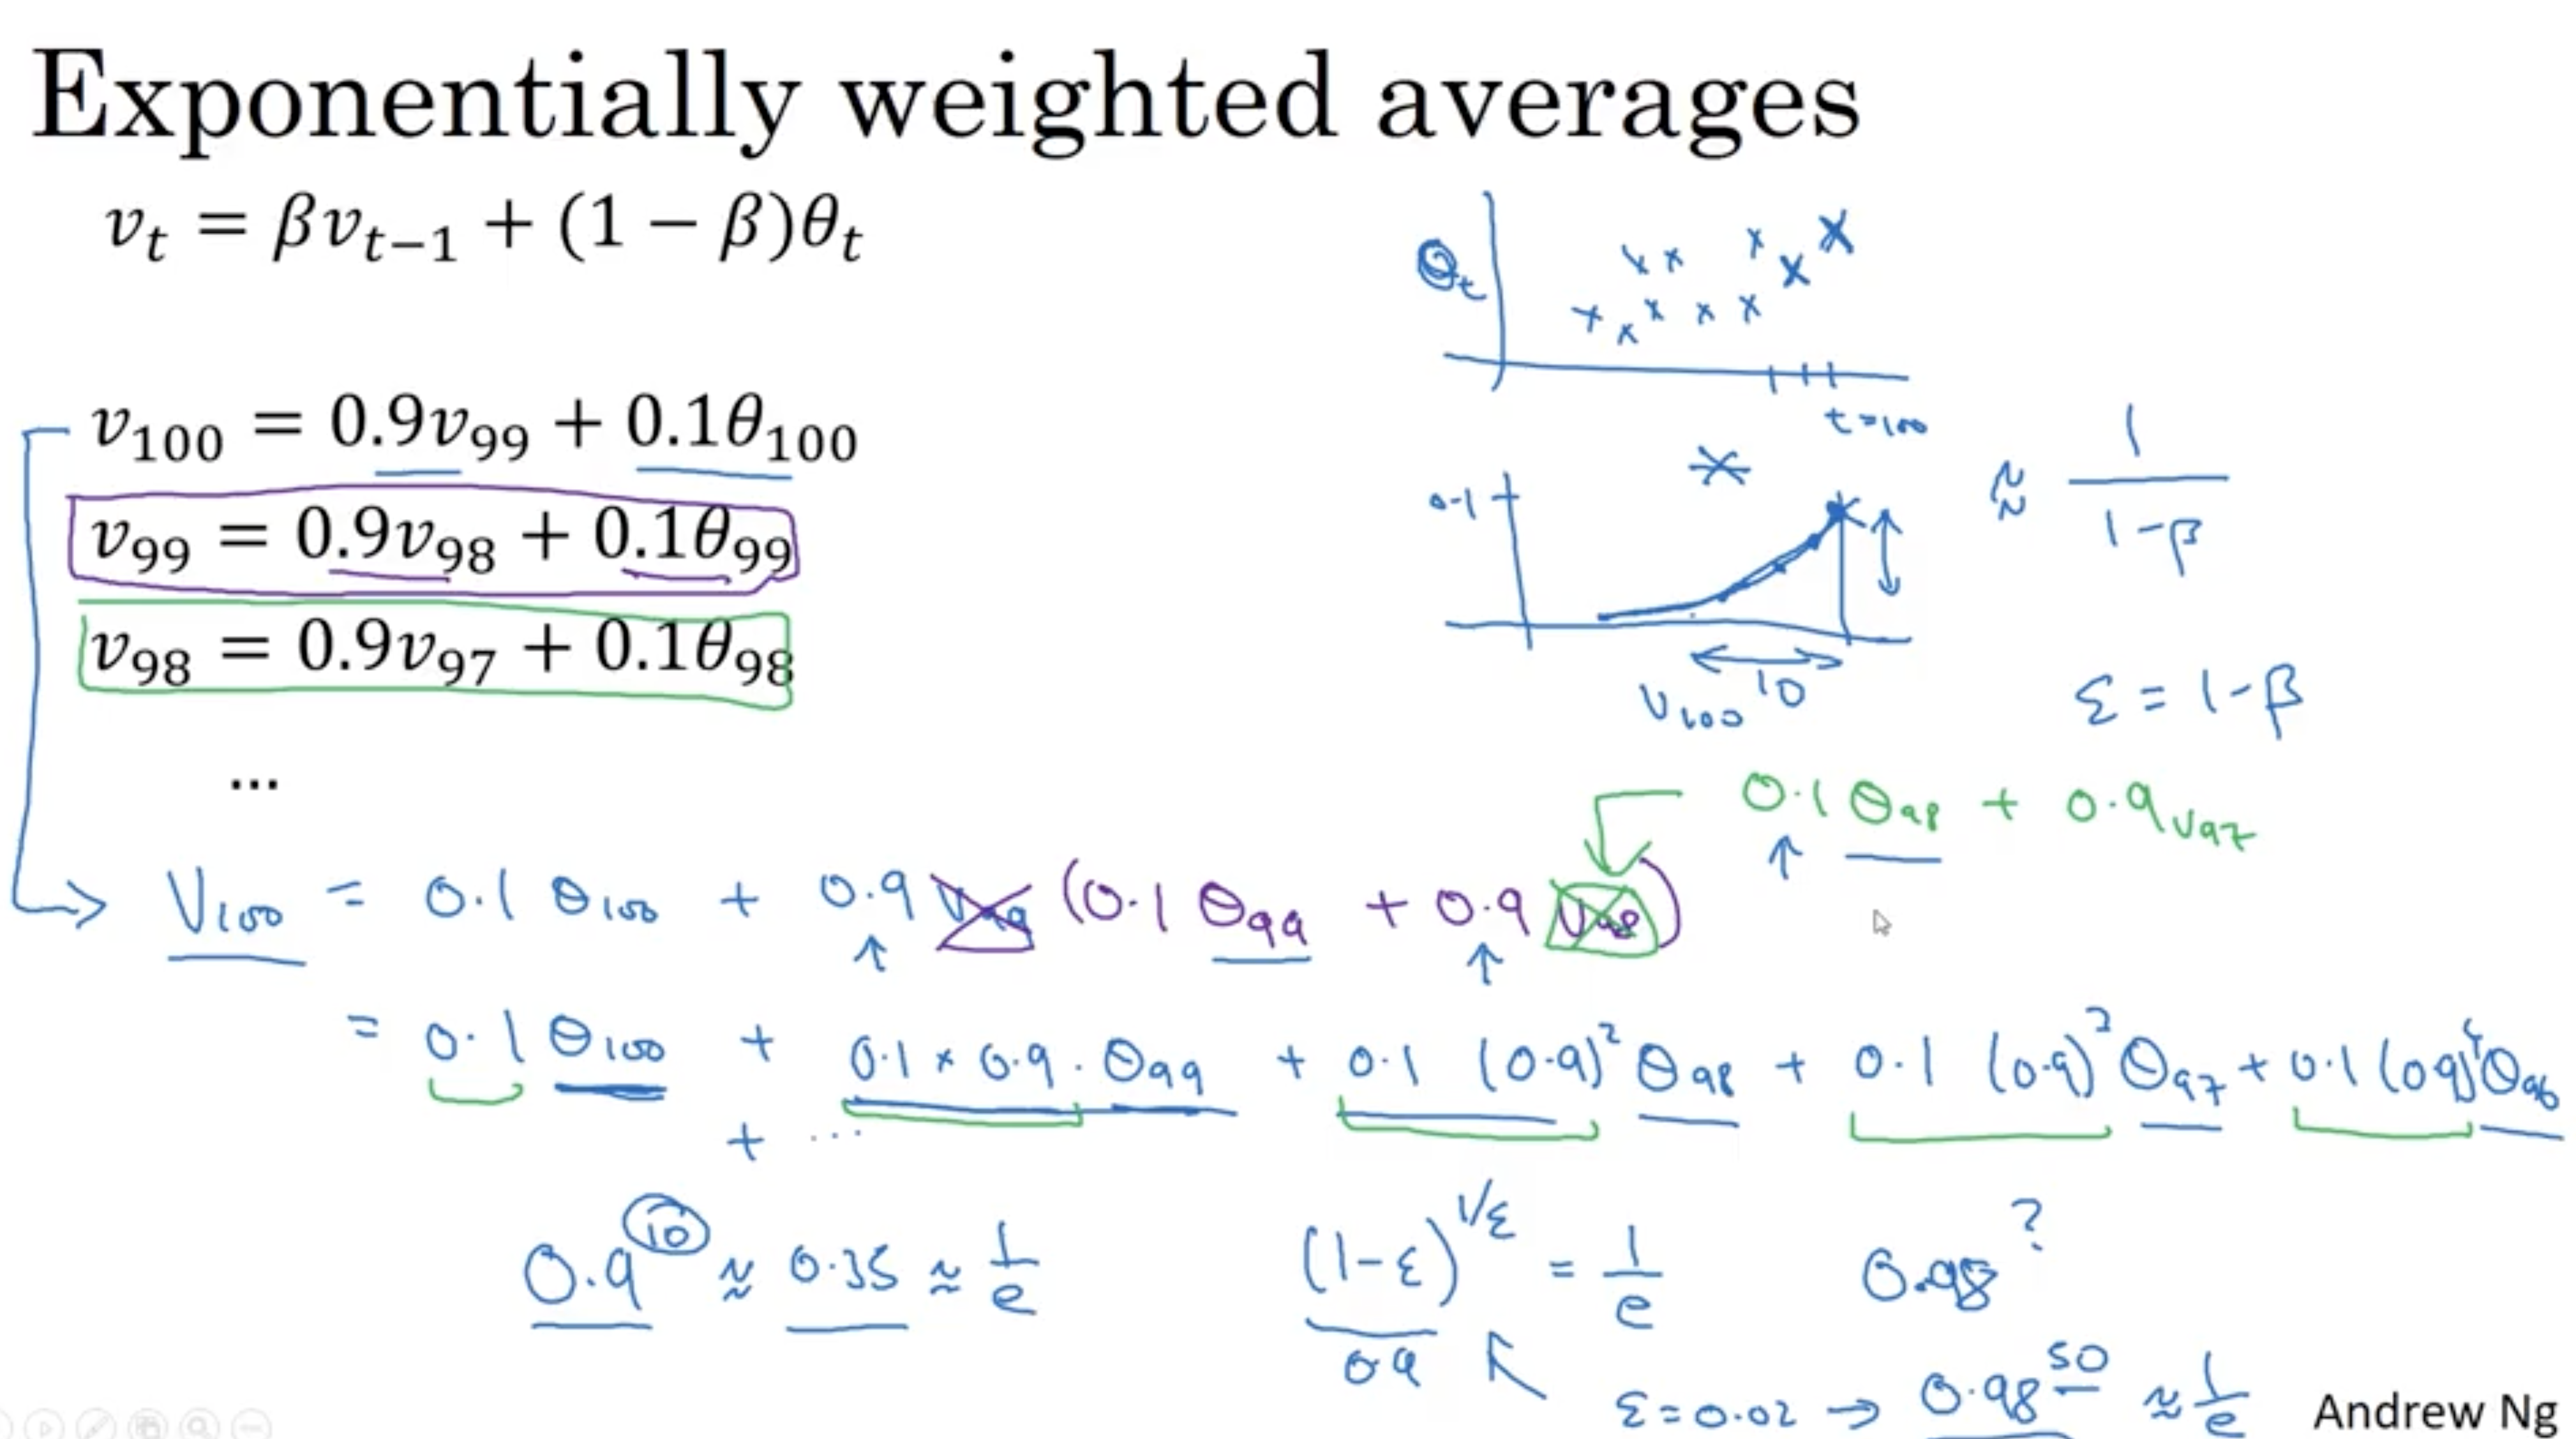 Exponentially weighted averages
v_t = βv_{t−1} + (1 − β)θ_t
θ_t
t=100
v_100 = 0.9v_99 + 0.1θ_100
v_99 = 0.9v_98 + 0.1θ_99
v_98 = 0.9v_97 + 0.1θ_98
...
0.1
10
V_100
≈ 1/(1-β)
ε = 1-β
0.1 θ_98 + 0.9 v_97
V_100 = 0.1 θ_100 + 0.9 v_99 (0.1 θ_99 + 0.9 v_98)
= 0.1 θ_100 + 0.1 × 0.9 · θ_99 + 0.1 (0.9)^2 θ_98 + 0.1 (0.9)^3 θ_97 + 0.1 (0.9)^4 θ_96
+ ...
0.9^10 ≈ 0.35 ≈ 1/e
(1-ε)^{1/ε} = 1/e
0.9
0.98^?
ε = 0.02 → 0.98^50 ≈ 1/e
Andrew Ng